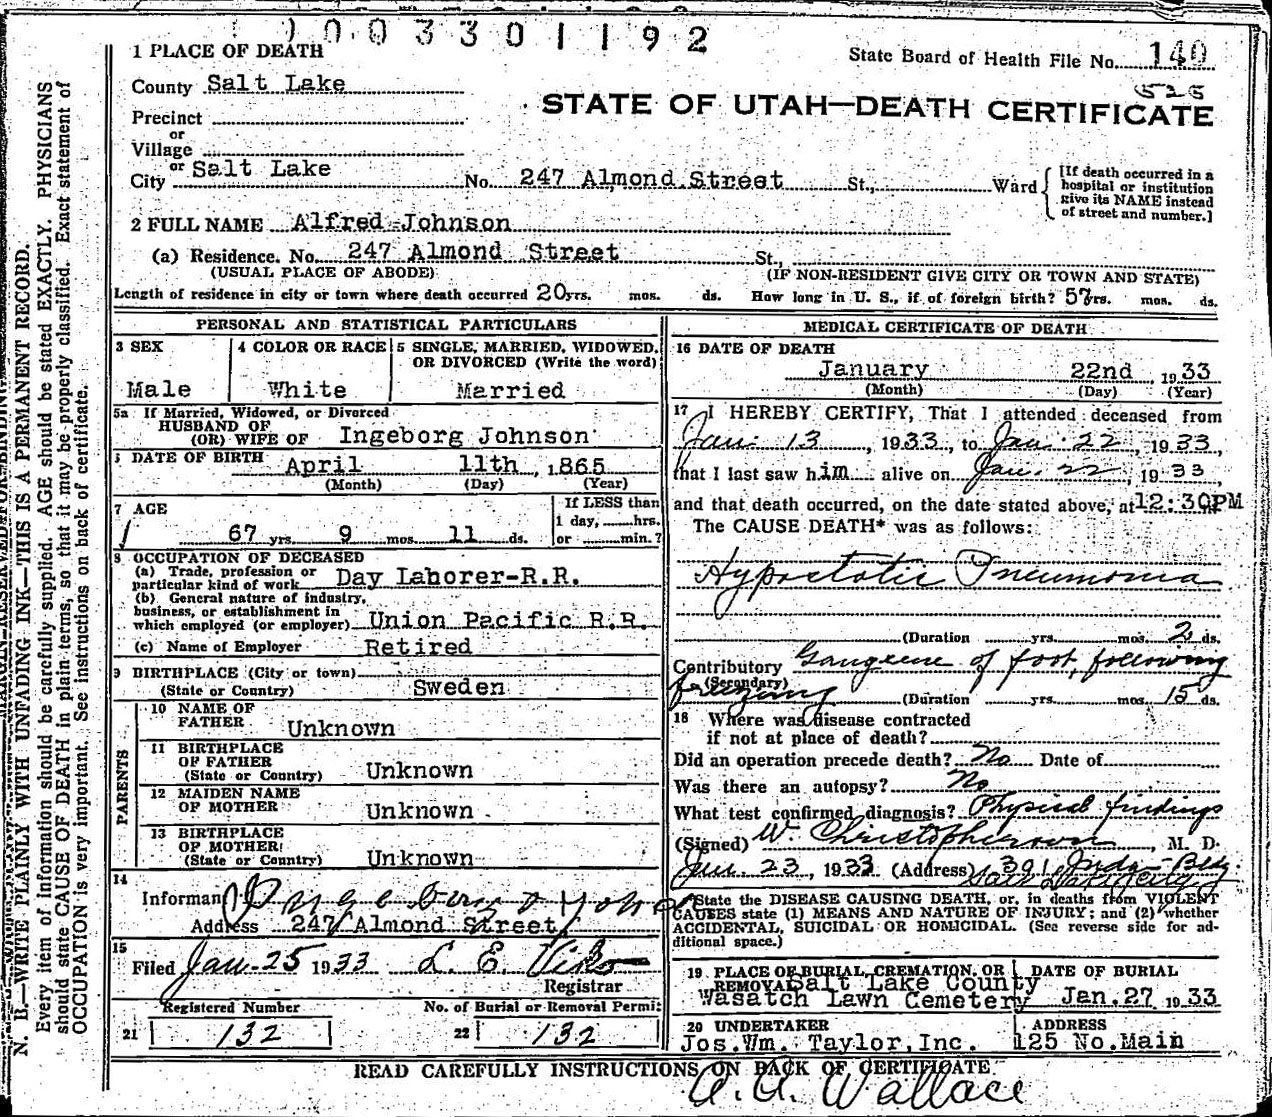 1003301192
1 PLACE OF DEATH
State Board of Health File No. 140
525
County Salt Lake
STATE OF UTAH—DEATH CERTIFICATE
Precinct
or
Village
or
City Salt Lake No. 247 Almond Street St., Ward
[If death occurred in a
hospital or institution
give its NAME instead
of street and number.]
2 FULL NAME Alfred Johnson
(a) Residence. No. 247 Almond Street St.,
(USUAL PLACE OF ABODE) (IF NON-RESIDENT GIVE CITY OR TOWN AND STATE)
Length of residence in city or town where death occurred 20 yrs. mos. ds. How long in U. S., if of foreign birth? 57 rs. mos. ds.
PERSONAL AND STATISTICAL PARTICULARS
3 SEX
Male
4 COLOR OR RACE
White
5 SINGLE, MARRIED, WIDOWED,
OR DIVORCED (Write the word)
Married
5a If Married, Widowed, or Divorced
HUSBAND OF
(OR) WIFE OF Ingeborg Johnson
6 DATE OF BIRTH April 11th, 1865
(Month) (Day) (Year)
7 AGE
67 yrs. 9 mos. 11 ds.
If LESS than
1 day, hrs.
or min.?
8 OCCUPATION OF DECEASED
(a) Trade, profession or
particular kind of work Day Laborer-R.R.
(b) General nature of industry,
business, or establishment in
which employed (or employer) Union Pacific R.R.
(c) Name of Employer Retired
9 BIRTHPLACE (City or town)
(State or Country) Sweden
PARENTS
10 NAME OF
FATHER Unknown
11 BIRTHPLACE
OF FATHER
(State or Country) Unknown
12 MAIDEN NAME
OF MOTHER Unknown
13 BIRTHPLACE
OF MOTHER
(State or Country) Unknown
14
Informan
Address 247 Almond Street
15
Filed Jan. 25 1933 L. E.
Registrar
Registered Number No. of Burial or Removal Permit
21 132 22 132
MEDICAL CERTIFICATE OF DEATH
16 DATE OF DEATH
January 22nd, 1933
(Month) (Day) (Year)
17 I HEREBY CERTIFY, That I attended deceased from
Jan. 13, 1933, to Jan. 22, 1933,
that I last saw him alive on Jan. 22, 1933,
and that death occurred, on the date stated above, at 12:30PM
The CAUSE DEATH* was as follows:
Hypostatic Pneumonia
(Duration yrs. mos. 2 ds.
Contributory Gangrene of foot, following
(Secondary)
freezing (Duration yrs. mos. 15 ds.
18 Where was disease contracted
if not at place of death?
Did an operation precede death? No Date of
Was there an autopsy? No
What test confirmed diagnosis? Physical findings
(Signed) W. Christopherson, M. D.
Jan 23, 1933 (Address) 301 Judge Bldg.
Salt Lake City
*State the DISEASE CAUSING DEATH, or, in deaths from VIOLENT
CAUSES state (1) MEANS AND NATURE OF INJURY; and (2) whether
ACCIDENTAL, SUICIDAL OR HOMICIDAL. (See reverse side for ad-
ditional space.)
19 PLACE OF BURIAL, CREMATION, OR
REMOVAL Salt Lake County
Wasatch Lawn Cemetery
DATE OF BURIAL
Jan. 27 1933
20 UNDERTAKER
Jos. Wm. Taylor, Inc.
ADDRESS
125 No. Main
READ CAREFULLY INSTRUCTIONS ON BACK OF CERTIFICATE
A. A. Wallace
N. B.—WRITE PLAINLY WITH UNFADING INK—THIS IS A PERMANENT RECORD.
Every item of information should be carefully supplied. AGE should be stated EXACTLY. PHYSICIANS
should state CAUSE OF DEATH in plain terms, so that it may be properly classified. Exact statement of
OCCUPATION is very important. See instructions on back of certificate.